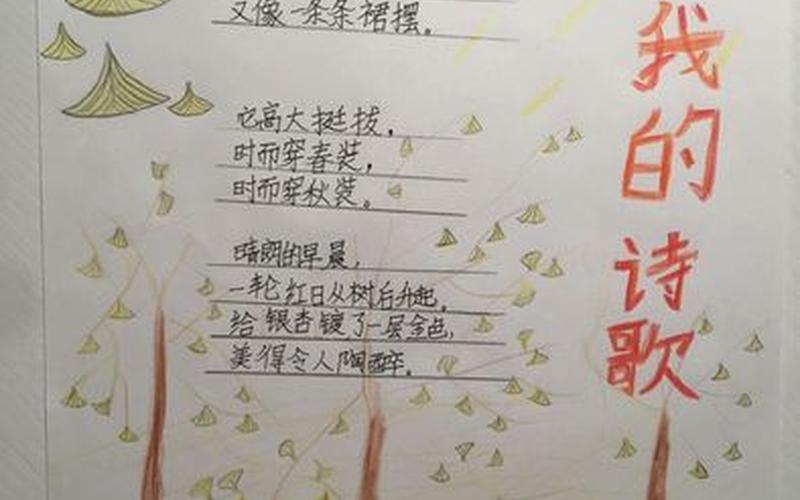 我的诗歌
又像一条条裙摆。
它高大挺拔，
时而穿春装，
时而穿秋装。
晴朗的早晨，
一轮红日从树后升起。
给银杏镀了一层金色，
美得令人陶醉。